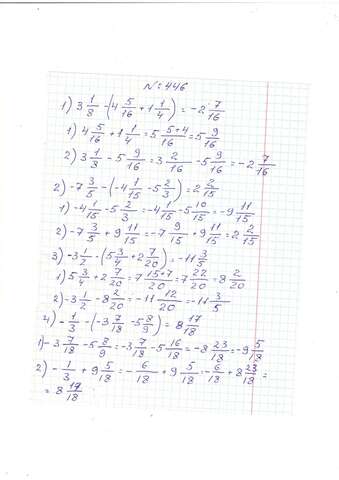 № 446
1) 3 1/8 - (4 5/16 + 1 1/4) = -2 7/16
1) 4 5/16 + 1 1/4 = 5 5+4/16 = 5 9/16
2) 3 1/8 - 5 9/16 = 3 2/16 - 5 9/16 = -2 7/16
2) -7 3/5 - (-4 1/15 - 5 2/3) = 2 2/15
1) -4 1/15 - 5 2/3 = -4 1/15 - 5 10/15 = -9 11/15
2) -7 3/5 + 9 11/15 = -7 9/15 + 9 11/15 = 2 2/15
3) -3 1/2 - (5 3/4 + 2 7/20) = -11 3/5
1) 5 3/4 + 2 7/20 = 7 15+7/20 = 7 22/20 = 8 2/20
2) -3 1/2 - 8 2/20 = -11 12/20 = -11 3/5
4) -1/3 - (-3 7/18 - 5 8/9) = 8 17/18
1) -3 7/18 - 5 8/9 = -3 7/18 - 5 16/18 = -8 23/18 = -9 5/18
2) -1/3 + 9 5/18 = -6/18 + 9 5/18 = -6/18 + 8 23/18 =
= 8 17/18